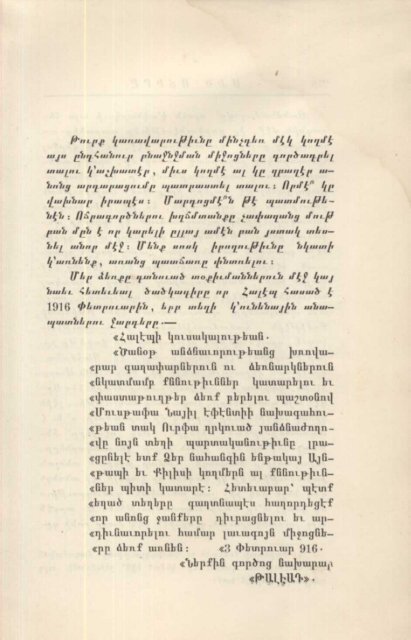 Թուրք կառավարութիւնը մինչդեռ մէկ կողմէ
այս ընդհանուր բնաջնջման միջոցները գործադրել
տալու կ՚աշխատէր, միւս կողմէ ալ կը զբաղէր ա-
նոնց արդարացումը պատրաստել տալու։ Որմէ՞ կը
վախնար իրապէս։ Մարդոցմէ՞ն թէ պատմութե-
նէն։ Ոճրագործներու խղճմտանքը չափազանց մութ
բան մըն է որ կարելի ըլլայ ամէն բան յստակ տես-
նել անոր մէջ։ Մենք սոսկ իրողութիւնը նկատի
կ՚առնենք, առանց պատճառը փնտռելու։
Մեր ձեռքը գտնուած տօքիւմաններուն մէջ կայ
նաեւ հետեւեալ ծածկագիրը որ Հալէպ հասած է
1916 Փետրուարին, երբ տեղի կ՚ունենային անա-
պատներու ջարդերը.—
«Հալէպի կուսակալութեան.
«Ծանօթ անձնաւորութեանց խռովա-
«րար գաղափարներուն ու ձեռնարկներուն
«նկատմամբ քննութիւններ կատարելու եւ
«փաստաթուղթեր ձեռք բերելու պաշտօնով
«Մուսթաֆա Նայիլ Էֆէնտիի նախագահու-
«թեան տակ Ուրֆա ղրկուած յանձնաժողո-
«վը նոյն տեղի պարտականութիւնը լրա-
«ցընելէ ետք Ձեր նահանգին ենթակայ Այն-
«թապի եւ Քիլիսի կողմերն ալ քննութիւն-
«ներ պիտի կատարէ։ Հետեւաբար՝ պէտք
«եղած տեղերը գաղտնապէս հաղորդեցէք
«որ անոնց ջանքերը դիւրացնելու եւ ար-
«դիւնաւորելու համար լաւագոյն միջոցնե-
«րը ձեռք առնեն։ «3 Փետրուար 916.
«Ներքին գործոց նախարար
«ԹԱԼԷԱԴ».